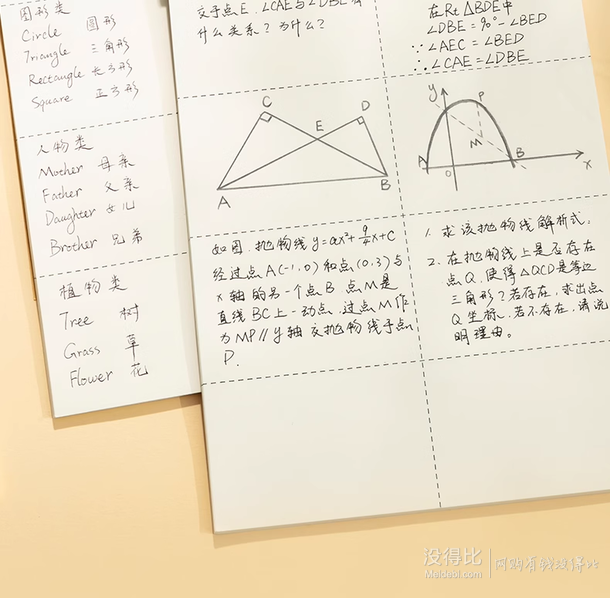 图形类
Circle 圆形
Triangle 三角形
Rectangle 长方形
Square 正方形
人物类
Mother 母亲
Father 父亲
Daughter 女儿
Brother 兄弟
植物类
Tree 树
Grass 草
Flower 花
交于点E.∠CAE与∠DBE有
什么关系?为什么?
在Rt△BDE中
∠DBE=90°-∠BED
∵∠AEC=∠BED
∴∠CAE=∠DBE
C
D
E
A
B
y
P
M
A
O
B
x
如图,抛物线y=ax²+9/4x+C
经过点A(-1,0)和点(0,3)与
x轴的另一个点B 点M是
直线BC上一动点,过点M作
为MP∥y轴交抛物线于点
P.
1. 求该抛物线解析式;
2. 在抛物线上是否存在
点Q,使得△QCD是等边
三角形?若存在,求出点
Q坐标,若不存在,请说
明理由。
没得比
Meidebi.com
网购有我没得比